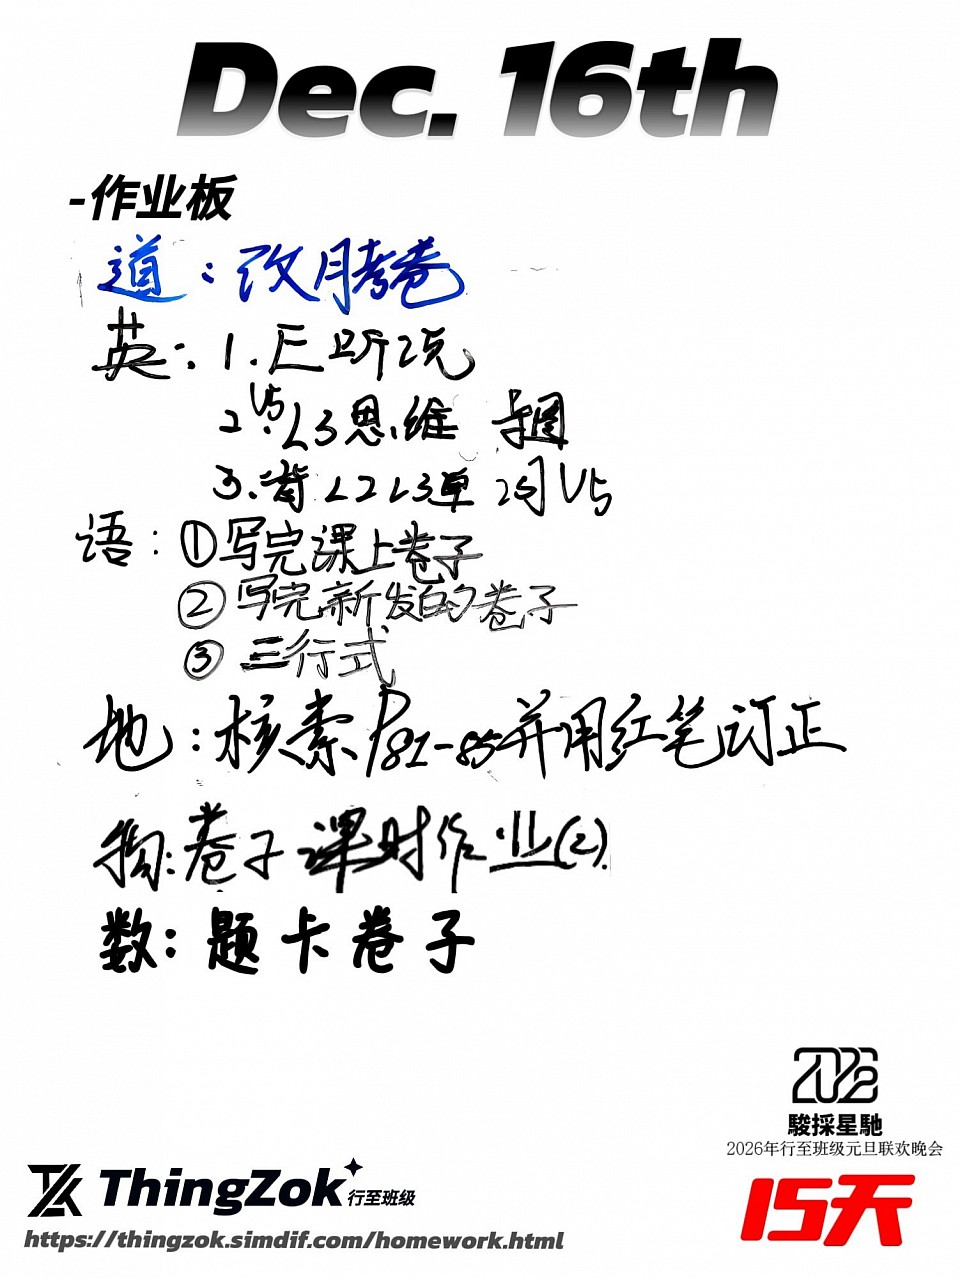 Dec. 16th
-作业板
道：改月考卷
英：1. E听说
2. U5 L3思维导图
3. 背L2L3单词U5
语：①写完课上卷子
②写完新发的卷子
③三行式
地：核素P81-85并用红笔订正
物：卷子课时作业(2)
数：题卡卷子
2026
駿採星馳
2026年行至班级元旦联欢晚会
ThingZok 行至班级
15天
https://thingzok.simdif.com/homework.html